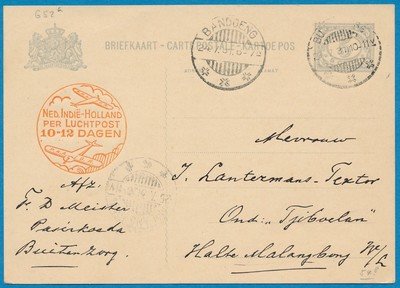 G52 c
BRIEFKAART - CARTE POSTALE - KARTOEPOS
BANDOENG
NED. INDIË-HOLLAND
PER LUCHTPOST
10-12 DAGEN
Mevrouw
J. Lantermans-Textor
Ond: „Tjiboelan"
Halte Malangbong
Afz.
F. D Meister
Pasirkoeda
Buitenzorg.